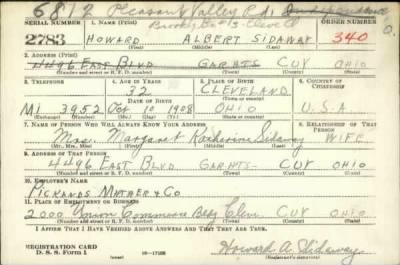 6812 Pleasant Valley Rd. Independence O.
SERIAL NUMBER 1. NAME (Print) ORDER NUMBER
2783 HOWARD ALBERT SIDAWAY 340
(First) (Middle) (Last)
2. ADDRESS (Print)
4496 EAST BLVD GAR.HTS. CUY OHIO
(Number and street or R. F. D. number) (Town) (County) (State)
3. TELEPHONE 4. AGE IN YEARS 5. PLACE OF BIRTH 6. COUNTRY OF CITIZENSHIP
32 CLEVELAND
DATE OF BIRTH (Town or county)
MI 3952 Oct 10 1908 OHIO U.S.A.
(Exchange) (Number) (Mo.) (Day) (Yr.) (State or country)
7. NAME OF PERSON WHO WILL ALWAYS KNOW YOUR ADDRESS 8. RELATIONSHIP OF THAT PERSON
Mrs. Margaret Katherine Sidaway WIFE
(Mr., Mrs., Miss) (First) (Middle) (Last)
9. ADDRESS OF THAT PERSON
4496 EAST BLVD GAR.HTS. CUY OHIO
(Number and street or R. F. D. number) (Town) (County) (State)
10. EMPLOYER'S NAME
PICKANDS MATHER & CO
11. PLACE OF EMPLOYMENT OR BUSINESS
2000 Union Commerce Bldg Cleve. CUY OHIO
(Number and street or R. F. D. number) (Town) (County) (State)
I AFFIRM THAT I HAVE VERIFIED ABOVE ANSWERS AND THAT THEY ARE TRUE.
REGISTRATION CARD
D. S. S. Form 1 Howard A. Sidaway
(Registrant's signature)